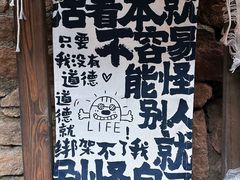 活着本就
不容易
能怪
别人
就
别怪自己
只要
我没有
道德
道德就
绑架不了我
LIFE!